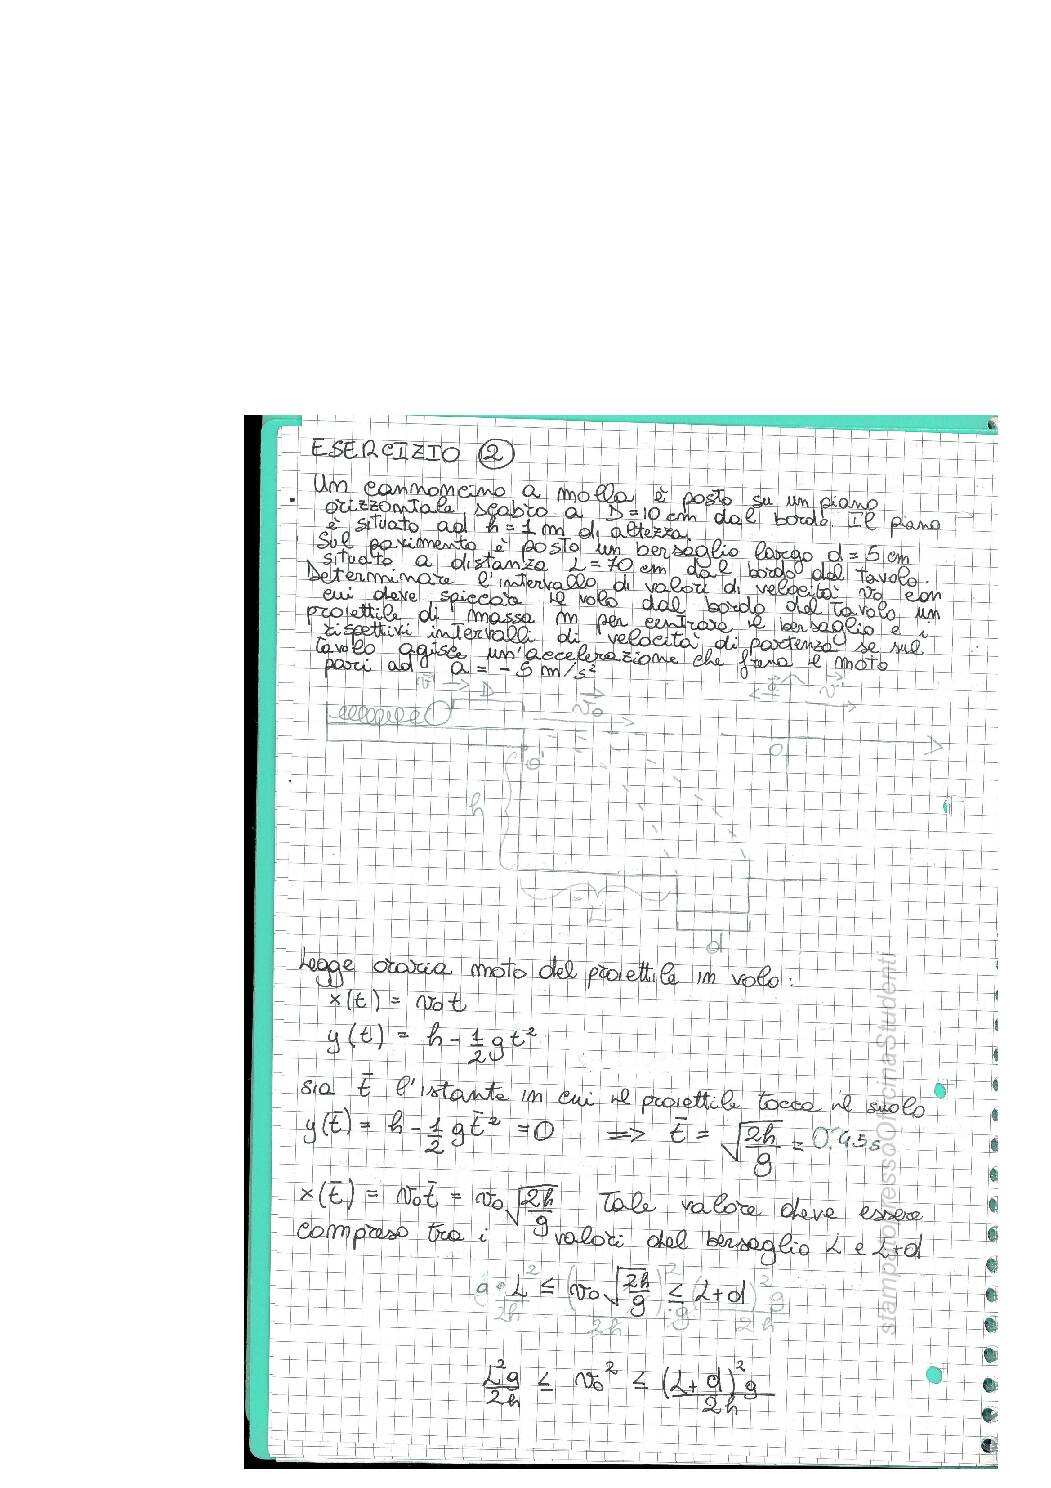 ESERCIZIO 2
Un cannoncino a molla è posto su un piano
orizzontale scabro a D=10 cm dal bordo. Il piano
è situato ad h=1 m di altezza.
Sul pavimento è posto un bersaglio largo d=5 cm
situato a distanza L=70 cm dal bordo del tavolo.
Determinare l'intervallo di valori di velocità v₀ con
cui deve spiccare il volo dal bordo del tavolo un
proiettile di massa m per centrare il bersaglio e i
rispettivi intervalli di velocità di partenza se sul
tavolo agisce un'accelerazione che frena il moto
pari ad a = -5 m/s²
v D v₀ a v
O
O
h
L
d
Legge oraria moto del proiettile in volo:
x(t) = v₀t
y(t) = h - 1/2 gt²
sia t̄ l'istante in cui il proiettile tocca il suolo
y(t̄) = h - 1/2 g t̄² = 0 => t̄ = √(2h/g) = 0.45s
x(t̄) = v₀t̄ = v₀√(2h/g) Tale valore deve essere
compreso tra i valori del bersaglio L e L+d
g/2h · L² ≤ (v₀√(2h/g))² · g/2h ≤ (L+d)² g/2h
L²g/2h ≤ v₀² ≤ (L+d)²g/2h
stampatopressoOfficinaStudenti